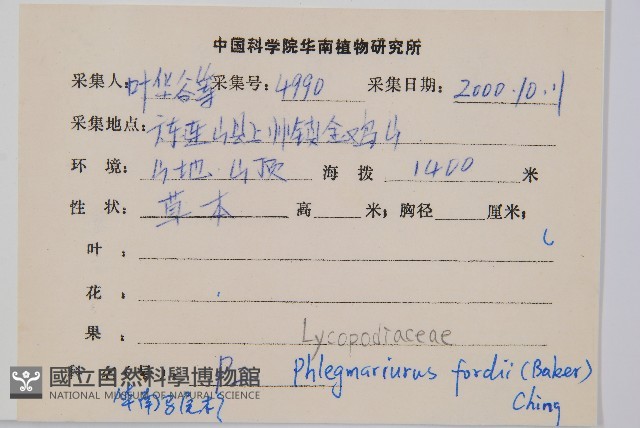 中国科学院华南植物研究所
采集人: 叶华谷等 采集号: 4990 采集日期: 2000.10.11
采集地点: 广东连山县上帅镇金鸡山
环 境: 山地.山顶 海 拨 1400 米
性 状: 草本 高 米; 胸径 厘米;
叶 :
花 :
果 :
Lycopodiaceae
國立自然科學博物館 Phlegmariurus fordii (Baker)
NATIONAL MUSEUM OF NATURAL SCIENCE Ching
华南马尾杉